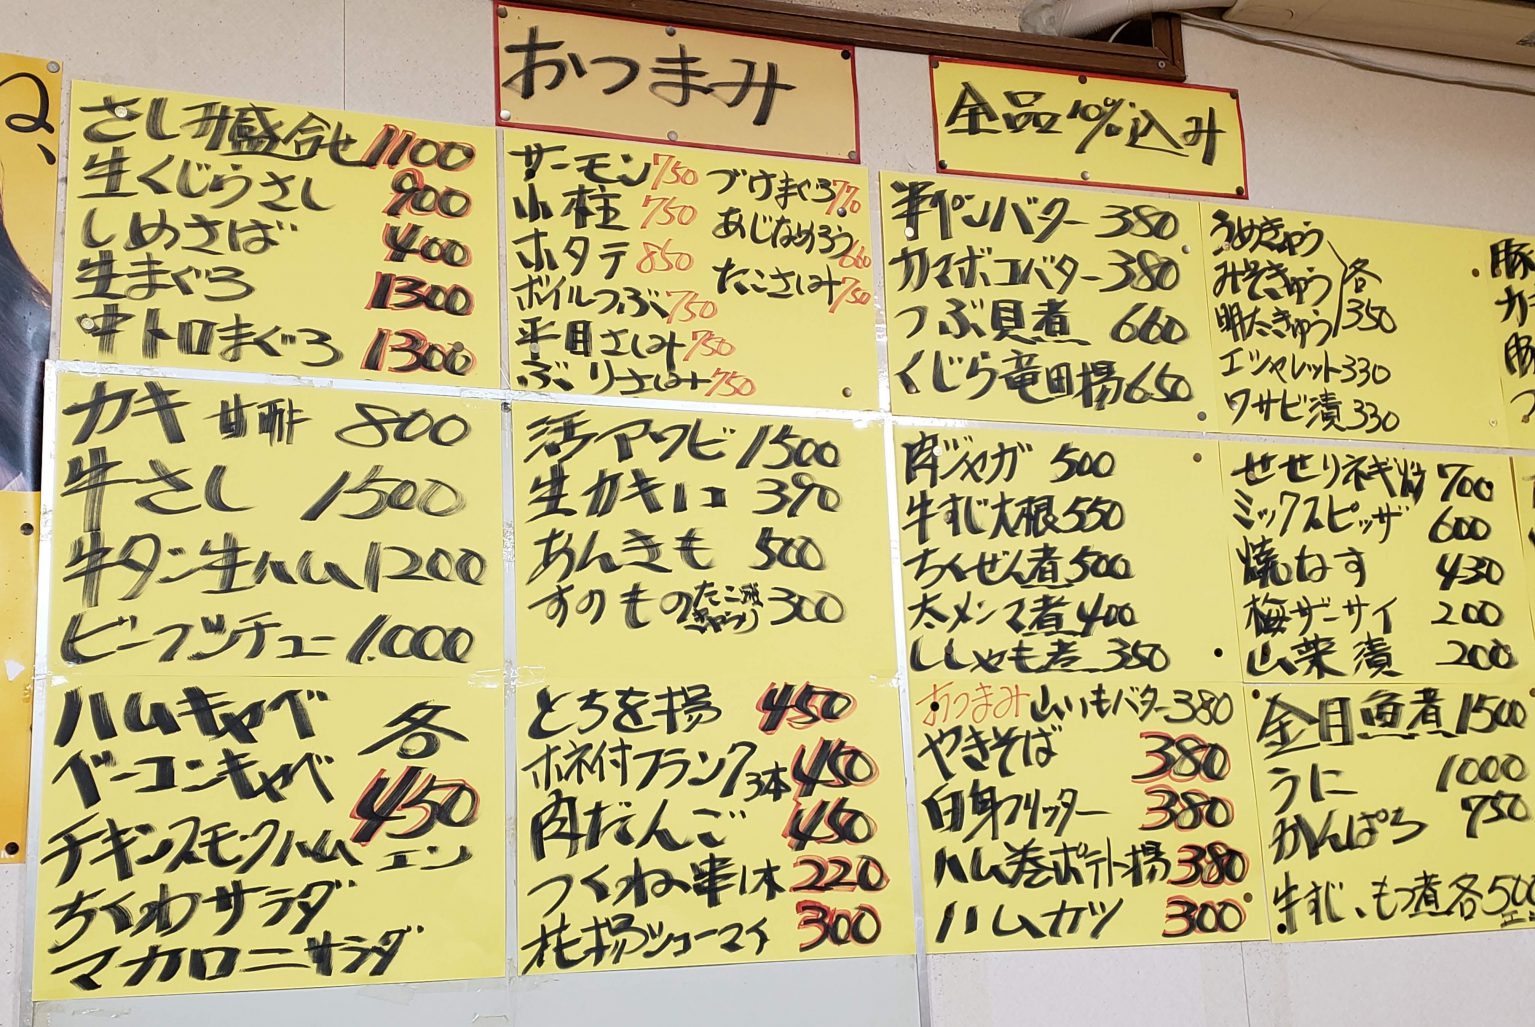 おつまみ
全品10%込み
さしみ盛合せ 1100
生くじらさし 900
しめさば 400
生まぐろ 1300
中トロまぐろ 1300
サーモン 750
小柱 750
ホタテ 850
ボイルつぶ 750
平目さしみ 750
ぶりさしみ 750
づけまぐろ 770
あじなめろう 660
たこさしみ 750
バター 380
カマボコバター 380
つぶ貝煮 660
くじら竜田揚 650
うめきゅう
みそきゅう
明たきゅう
各
350
エシャレット 330
ワサビ漬 330
豚
カキ 甘酢 800
牛さし 1500
牛タン生ハム 1200
ビーフシチュー 1.000
活アワビ 1500
生カキ1コ 390
あんきも 500
すのもの たこ きゅうり 300
肉ジャガ 500
牛すじ大根 550
ちくぜん煮 500
太メンマ煮 400
ししゃも煮 350
せせりネギ炒 700
ミックスピッザ 600
焼なす 430
梅ザーサイ 200
山菜漬 200
ハムキャベ
ベーコンキャベ
チキンスモークハム
ちくわサラダ
マカロニサラダ
各
450
エン
とちを揚 450
ホネ付フランク3本 450
肉だんご 450
つくね串1本 220
揚シューマイ 300
おつまみ 山いもバター 380
やきそば 380
白身フリッター 380
ハム巻ポテト揚 380
ハムカツ 300
金目魚煮 1500
うに 1000
かんぱち 750
牛すじ、もつ煮各500